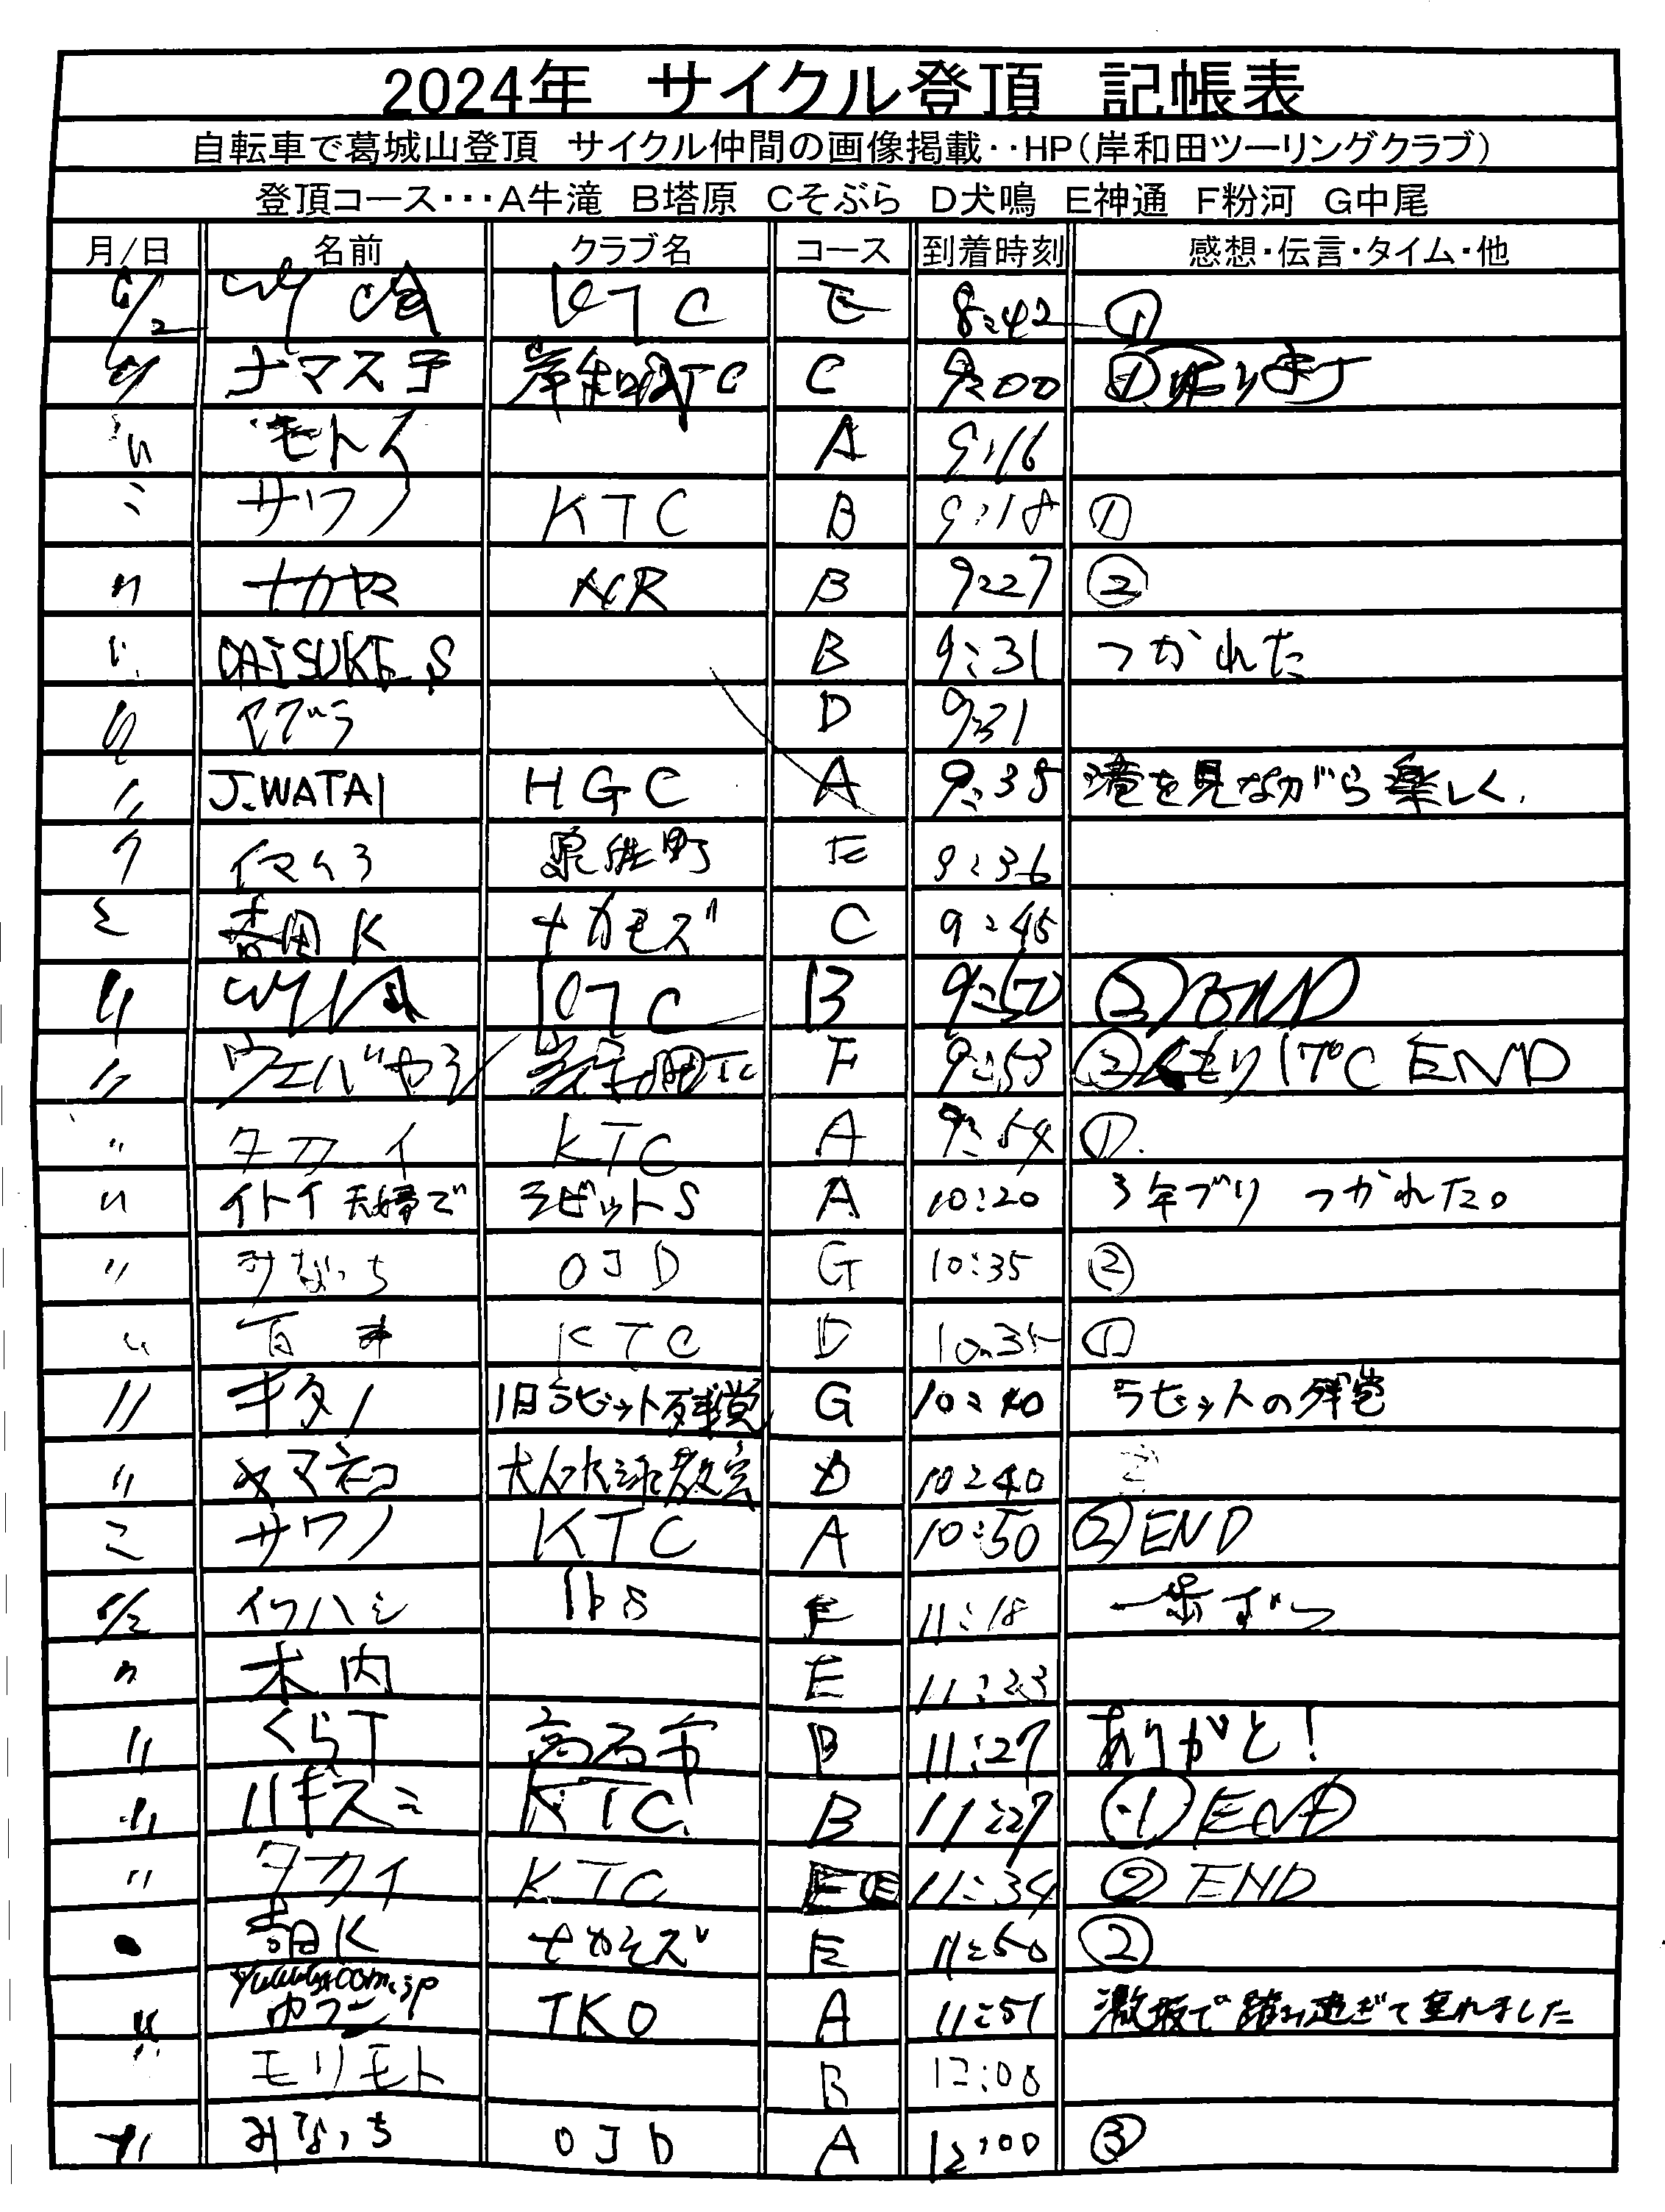 2024年 サイクル登頂 記帳表
自転車で葛城山登頂 サイクル仲間の画像掲載‥HP(岸和田ツーリングクラブ)
登頂コース・・・A牛滝 B塔原 Cそぶら D犬鳴 E神通 F粉河 G中尾
月/日 名前 クラブ名 コース 到着時刻 感想・伝言・タイム・他
6/2 KTC E 8:42 ①
〃 ナマステ 岸和田TC C 9:00 ①
〃 モトイ A 9:16
〃 サワノ KTC B 9:18 ①
〃 ナカヤマ NR B 9:27 ②
〃 DAiSUKE.S B 9:31 つかれた
〃 D 9:31
〃 J.WATAI HGC A 9:35 滝を見ながら楽しく.
〃 イマムラ 泉佐野 E 9:36
〃 吉田K ナカモズ C 9:45
〃 KTC B 9:50 ② END
〃 ウエバヤシ 岸和田TC F 9:53 ②くもり17℃ END
〃 タカイ KTC A 9:54 ①.
〃 イトイ夫婦で ラビットS A 10:20 3年ブリ つかれた。
〃 みなっち OJD G 10:35 ②
〃 百井 KTC D 10:35 ①
〃 キタノ 旧ラビット残党 G 10:40 ラビットの残党
〃 ヤマネコ D 10:40
〃 サワノ KTC A 10:50 ② END
6/2 イワハシ F 11:18 一歩ずつ
〃 木内 E 11:23
〃 くらT 高石市 B 11:27 ありがと!
〃 ハギスミ KTC B 11:27 ① END
〃 タカイ KTC E 11:34 ② END
吉田K ナカモズ E 11:50 ②
〃 TKO A 11:51 激坂で踏み過ぎて垂れました
〃 モリモト B 12:08
〃 みなっち OJD A 12:00 ③